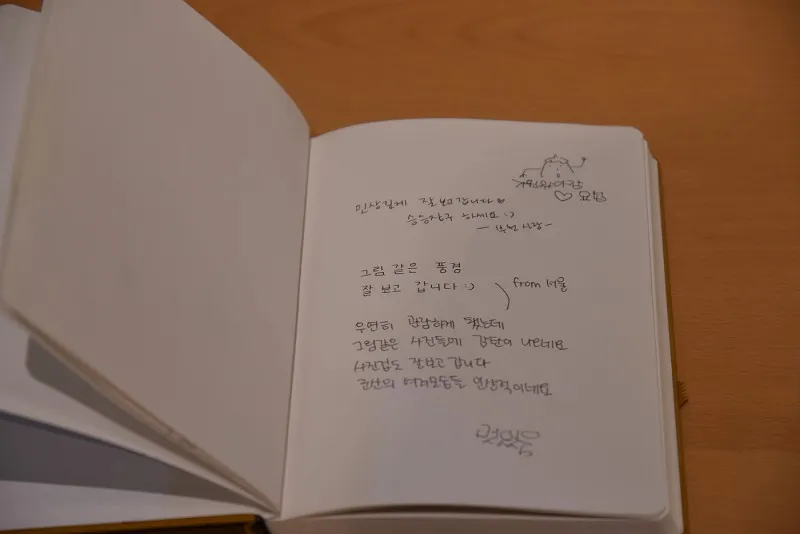 인상깊게 잘 보고 갑니다 ♥
승승장구 하세요 :)
그림 같은 풍경
잘 보고 갑니다 :)
from 서울
우연히 관람하게 됐는데
그림같은 사진들에 감탄이 나오네요
사진집도 잘보고 갑니다
군산의 여러모습들 인상적이네요